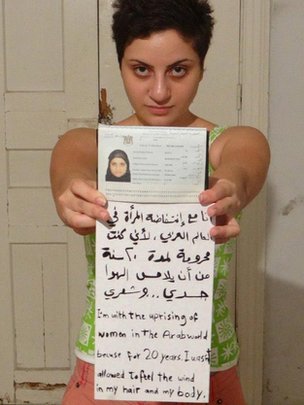 أنا مع إنتفاضة المرأة في
العالم العربي، لأني كنت
محرومة لمدة ٢٠ سنة
من أن يلامس الهوا
جسدي... وشعري
I'm with the uprising of
women in the Arab world
becuse for 20 years. I wasn't
allowed to feel the wind
in my hair and my body.